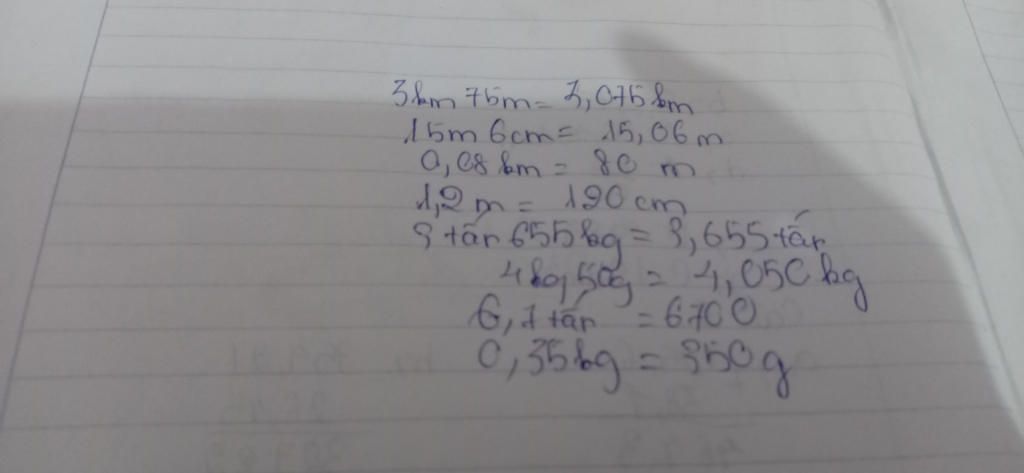 3km 75m = 3,075km
15m 6cm = 15,06 m
0,08 km = 80 m
1,2 m = 120 cm
3 tấn 655kg = 3,655 tấn
4kg 50g = 4,050 kg
6,7 tấn = 6700
0,35kg = 350g